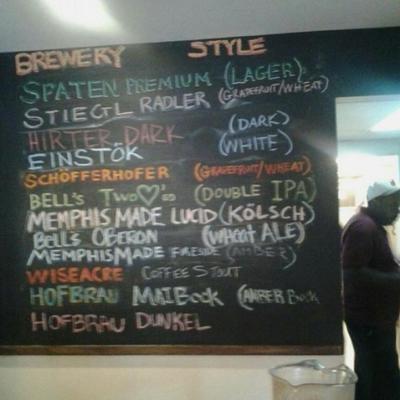 BREWERY STYLE
SPATEN PREMIUM (LAGER)
STIEGL RADLER (GRAPEFRUIT/WHEAT)
HIRTER DARK (DARK)
EINSTÖK (WHITE)
SCHÖFFERHOFER (GRAPEFRUIT/WHEAT)
BELL'S TWO♡'ED (DOUBLE IPA)
MEMPHIS MADE LUCID (KÖLSCH)
BELL'S OBERON (WHEAT ALE)
MEMPHIS MADE FIRESIDE (AMBER)
WISEACRE COFFEE STOUT
HOFBRAU MAIBOCK (AMBER BOCK
HOFBRAU DUNKEL